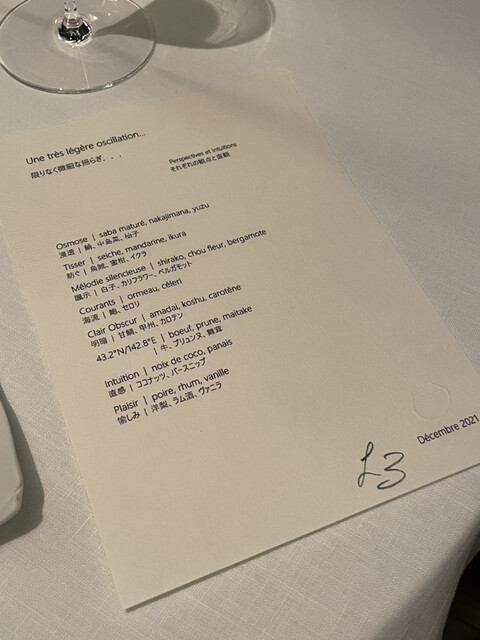 Une très légère oscillation...
限りなく微細な揺らぎ...
Perspectives et Intuitions
それぞれの観点と直観
Osmose | saba maturé, nakajimana, yuzu
浸透 | 鯖、中島菜、柚子
Tisser | seiche, mandarine, ikura
紡ぐ | 烏賊、蜜柑、イクラ
Mélodie silencieuse | shirako, chou fleur, bergamote
白子、カリフラワー、ベルガモット
Courants | ormeau, céleri
海流 | 鮑、セロリ
Clair Obscur | amadai, koshu, carotène
明暗 | 甘鯛、甲州、カロテン
43.2°N/142.8°E | boeuf, prune, maitake
| 牛、プリュンヌ、舞茸
Intuition | noix de coco, panais
直感 | ココナッツ、パースニップ
Plaisir | poire, rhum, vanille
愉しみ | 洋梨、ラム酒、ヴァニラ
Décembre 2021